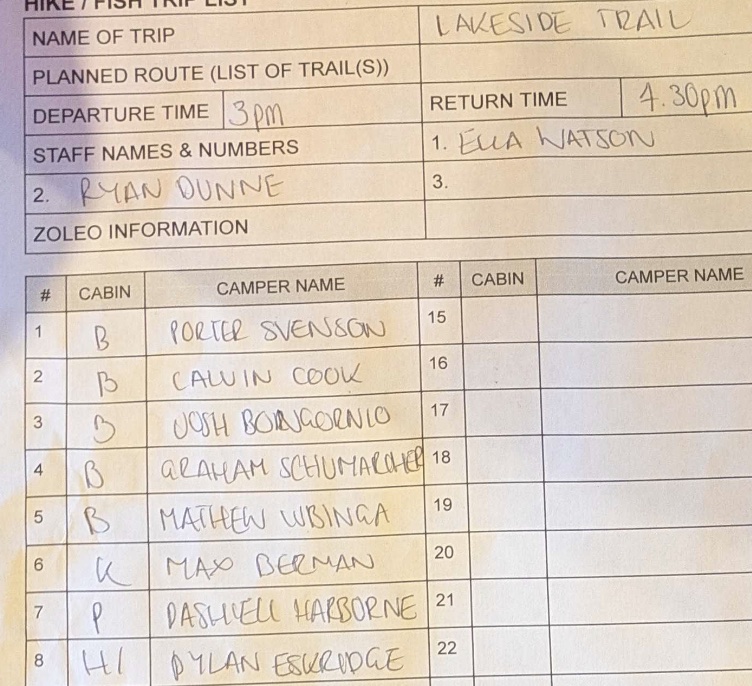 HIKE / FISH TRIP LIST
NAME OF TRIP LAKESIDE TRAIL
PLANNED ROUTE (LIST OF TRAIL(S))
DEPARTURE TIME 3pm RETURN TIME 4.30pm
STAFF NAMES & NUMBERS 1. ELLA WATSON
2. RYAN DUNNE 3.
ZOLEO INFORMATION
# CABIN CAMPER NAME # CABIN CAMPER NAME
1 B PORTER SVENSON 15
2 B CALVIN COOK 16
3 B JOSH BONGORNIO 17
4 B GRAHAM SCHUMARCHER 18
5 B MATHEW WBINGA 19
6 K MAX BERMAN 20
7 P DASHIELL HARBORNE 21
8 H1 DYLAN ESKRIDGE 22